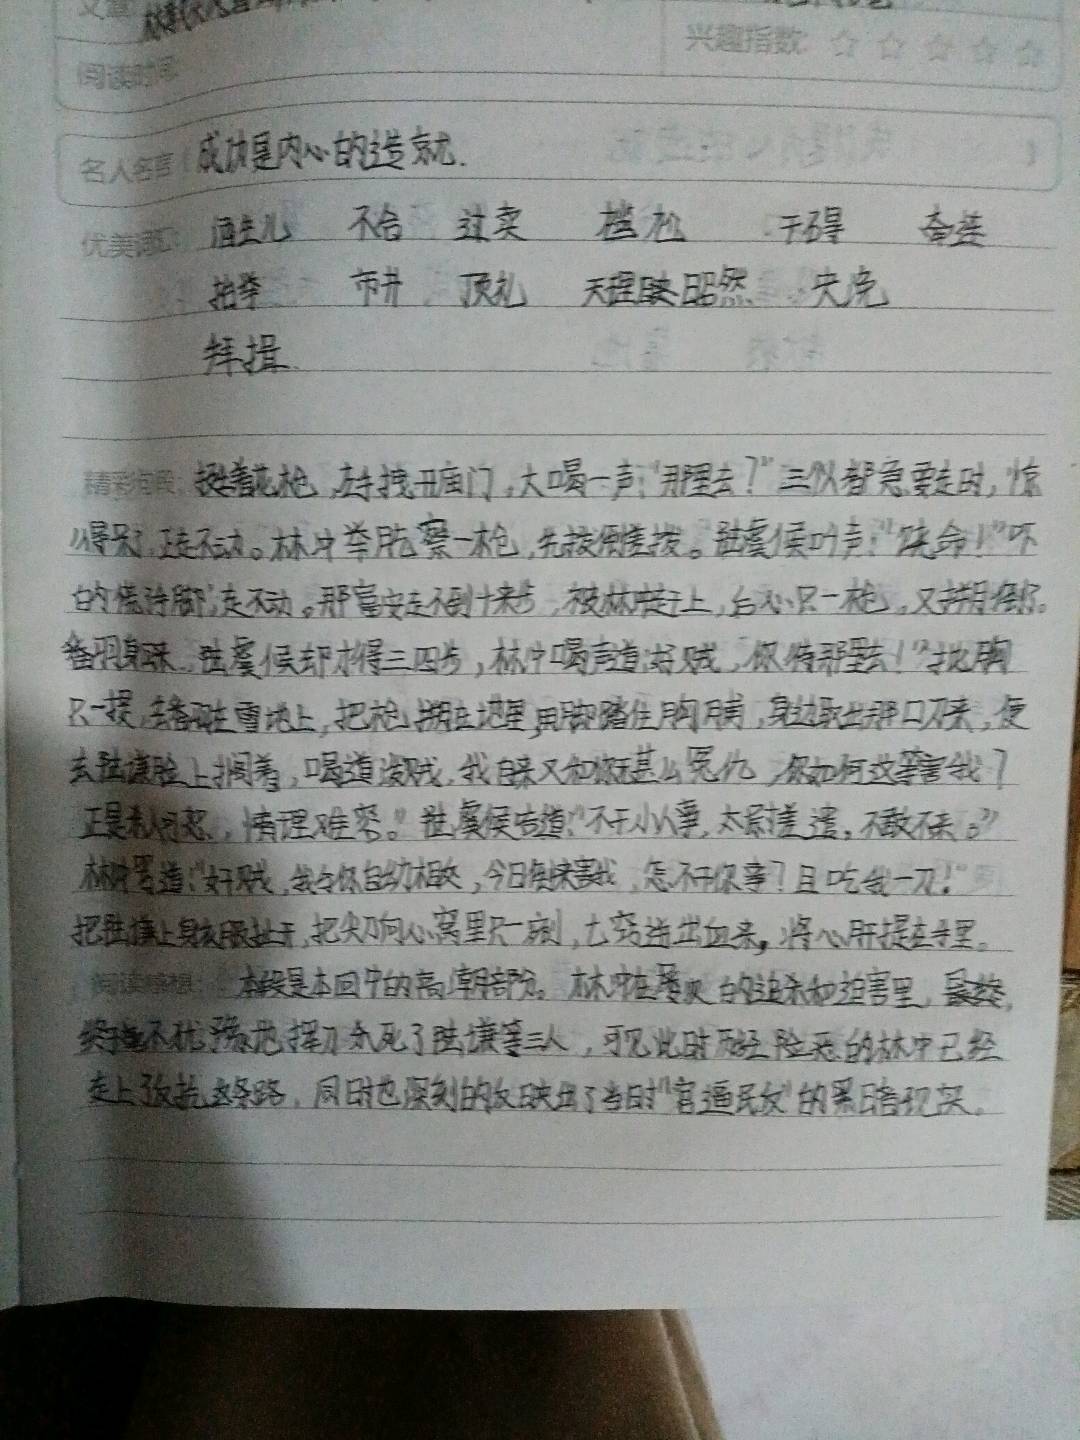 兴趣指数: ☆ ☆ ☆ ☆ ☆
阅读时间:
名人名言: 成功是内心的造就.
优美词汇: 酒生儿 不合 过卖 尴尬 干碍 奋
抬举 市井 顶礼 天理昭然 央浼
拜揖.
精彩句段: 挺着花枪,左手拽开庙门,大喝一声:“那里去?”三个人都急要走时,惊
得呆了,正走不动。林冲举手察一枪,先拨倒差拨。陆虞候叫声:“饶命!”吓
的慌手脚,走不动。那富安走不到十来步,被林冲赶上,后心只一枪,又搠倒了。
翻身回来,陆虞候却才得三四步,林冲喝声道:好贼,你待那里去!”批胸
只一提,丢翻在雪地上,把枪搠在地里,用脚踏住胸脯,身边取出那口刀来,便
去陆谦脸上搁着,喝道:泼贼,我自来又和你无甚么冤仇,你如何这等害我?
正是杀人可恕,情理难容。”陆虞候告道:“不干小人事,太尉差遣,不敢不来。”
林冲骂道:“好贼,我与你自幼相交,今日倒来害我,怎不干你事?且吃我一刀!”
把陆谦上身衣服扯开,把尖刀向心窝里只一剜,七窍迸出血来,将心肝提在手里。
阅读感想: 本段是本回中的高潮部分。林冲在屡次的追杀和迫害里,最终,
终于毫不犹豫地挥刀杀死了陆谦等三人,可见此时历经险恶的林冲已经
走上了反抗这条路,同时也深刻的反映出了当时“官逼民反”的黑暗现实。